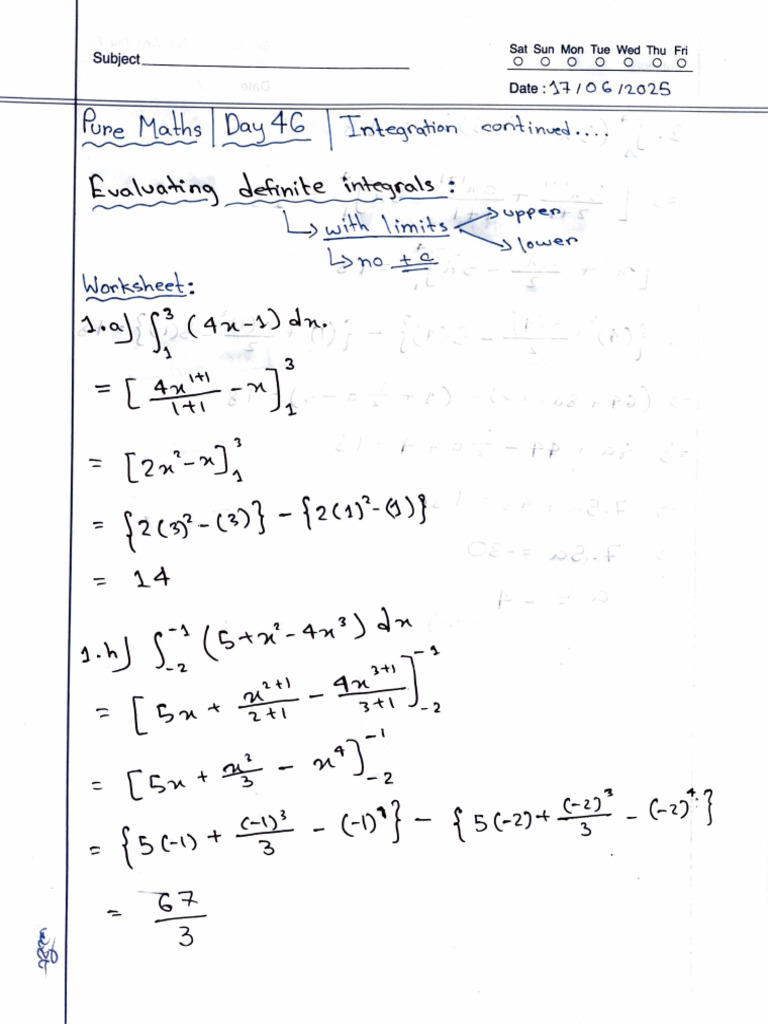 Subject
Sat Sun Mon Tue Wed Thu Fri
Date : 17/06/2025
Pure Maths | Day 46 | Integration continued....
Evaluating definite integrals :
↳ with limits → upper
→ lower
↳ no + c
Worksheet:
1.a) ∫₁³ (4x-1) dx.
= [4x¹⁺¹/1+1 - x]₁³
= [2x² - x]₁³
= {2(3)² - (3)} - {2(1)² - (1)}
= 14
1.h) ∫₋₂⁻¹ (5+x² - 4x³) dx
= [5x + x²⁺¹/2+1 - 4x³⁺¹/3+1]₋₂⁻¹
= [5x + x³/3 - x⁴]₋₂⁻¹
= {5(-1) + (-1)³/3 - (-1)⁴} - {5(-2) + (-2)³/3 - (-2)⁴}
= 67/3